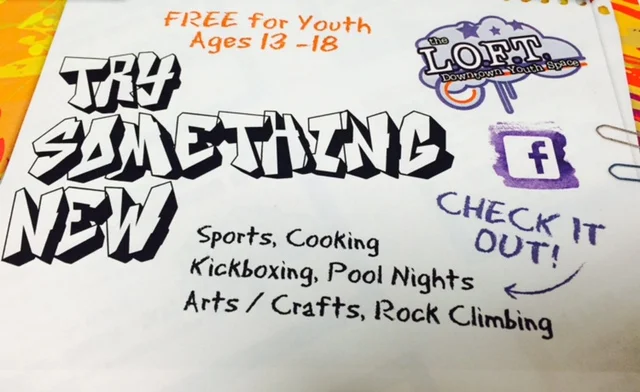 FREE for Youth
Ages 13 -18
the
L.O.F.T.
Downtown Youth Space
TRY
SOMETHING
NEW
f
CHECK IT
OUT!
Sports, Cooking
Kickboxing, Pool Nights
Arts / Crafts, Rock Climbing